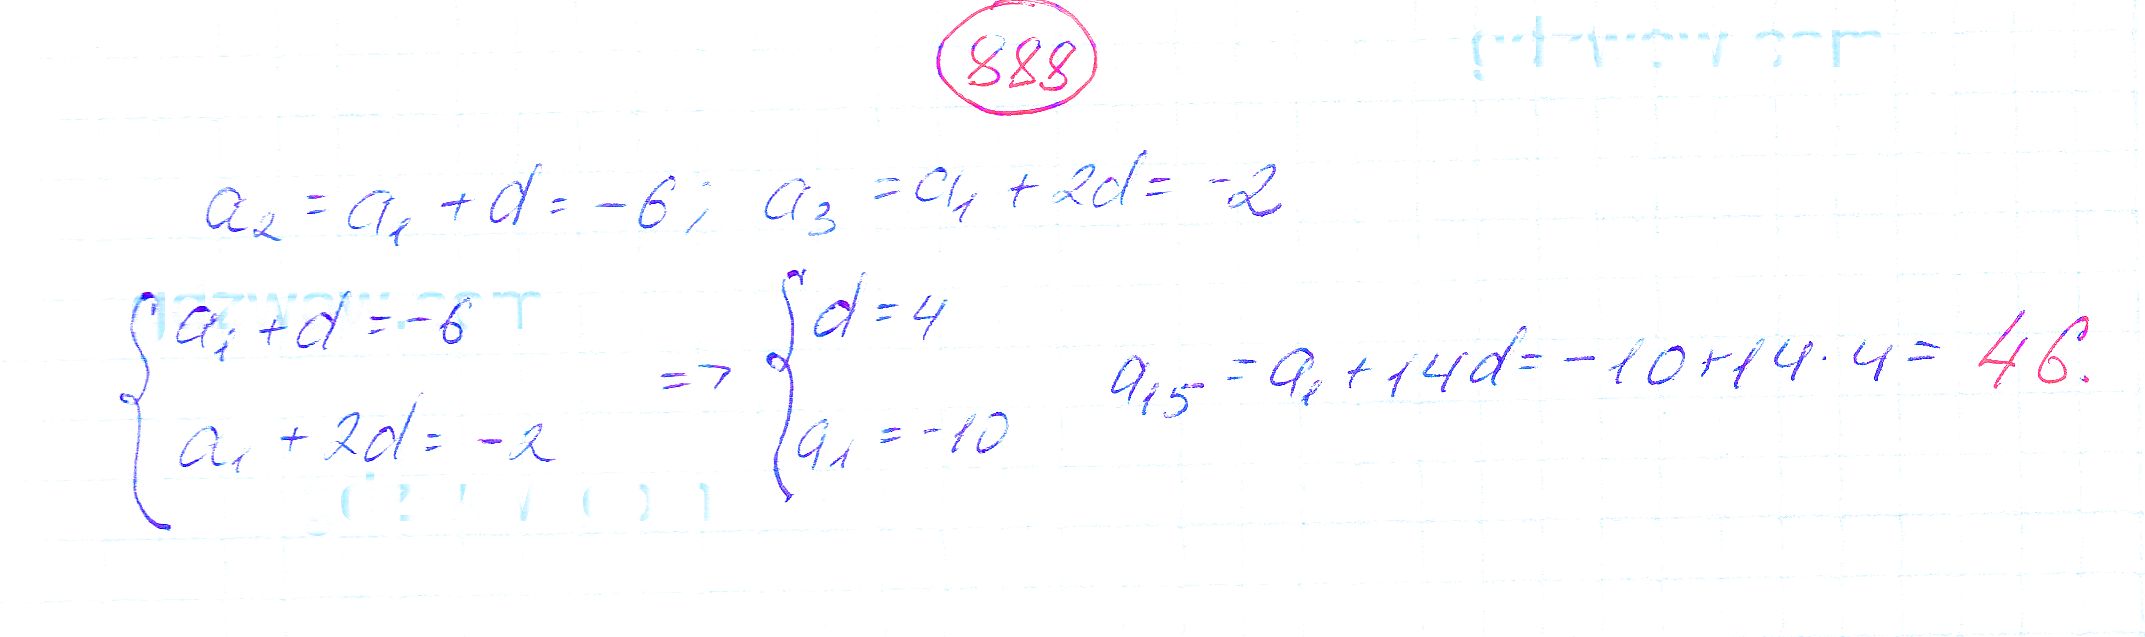 888
a₂ = a₁ + d = -6; a₃ = a₁ + 2d = -2
{ a₁ + d = -6
a₁ + 2d = -2 => { d = 4
a₁ = -10 a₁₅ = a₁ + 14d = -10 + 14 · 4 = 46.